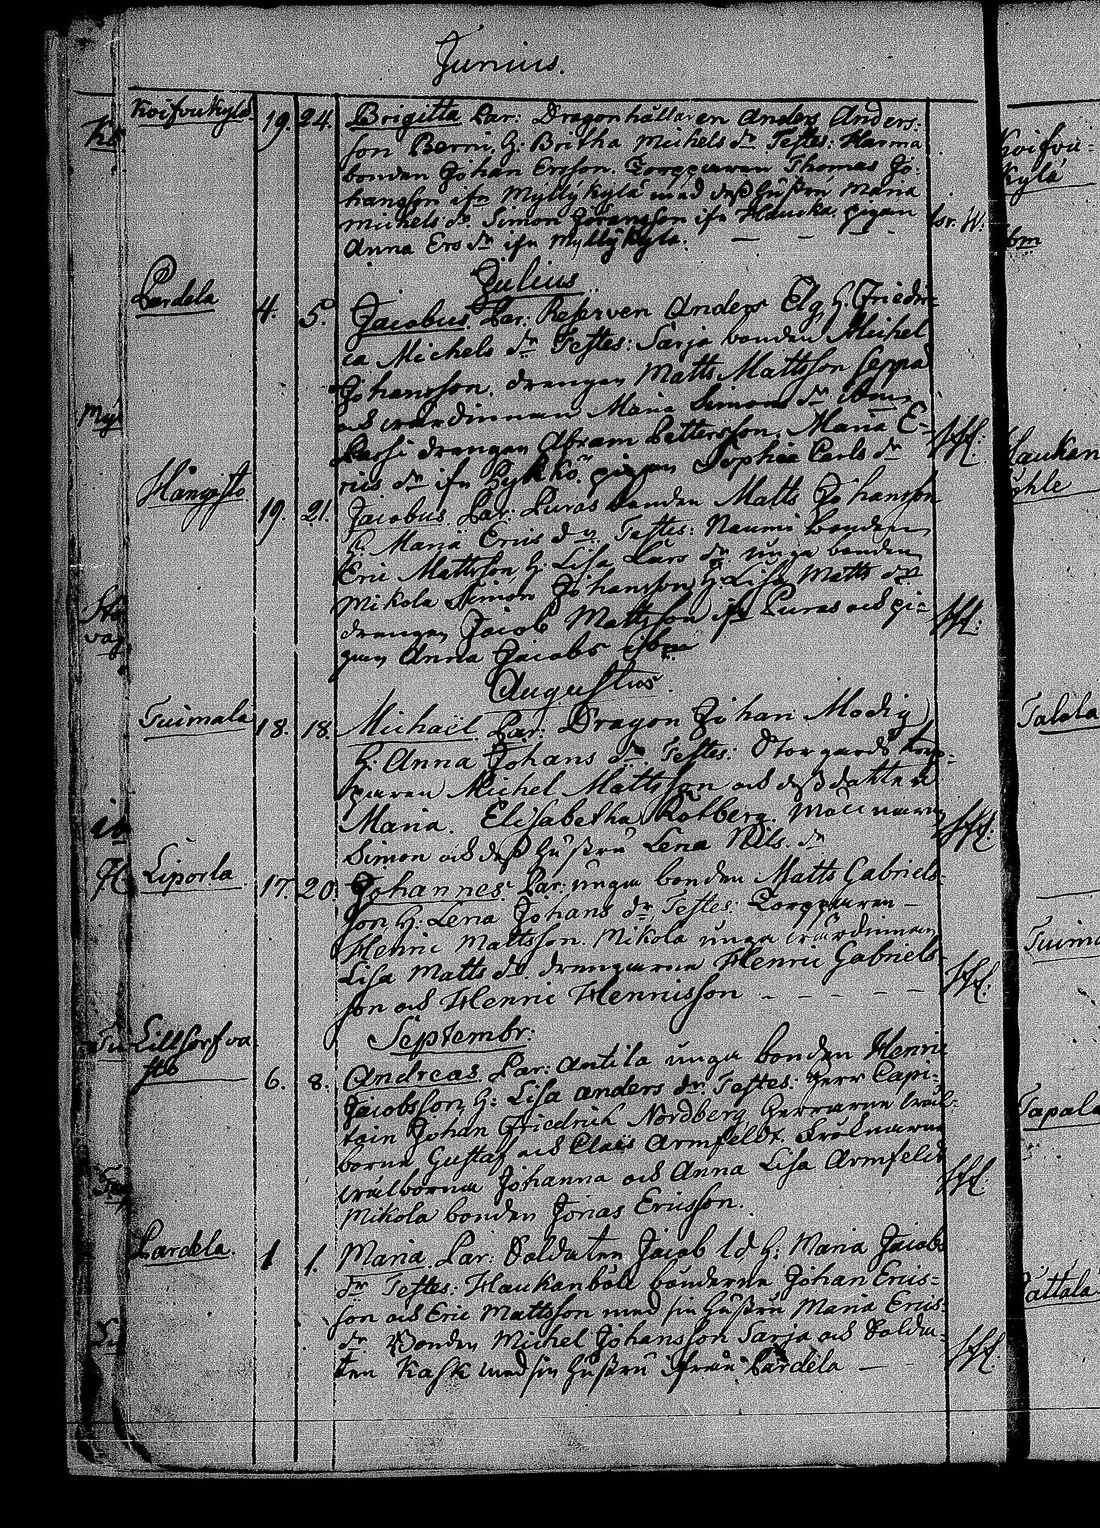 Junius.
Koifvukylä. 19. 24. Brigitta Par: Dragonhållaren Anders Anders-
son Berni, H: Britha Michels dr Testes: Harma
bonden Johan Ersson. Torpparen Thomas Jo-
hansson ifr Myllykylä med dess hustru Maria
Michels dr. Simon Göransson ifr Hauka. pigan
Anna Ers dr ifr Myllykylä.
Julius
Pardela 4. 5. Jacobus. Par: Reserven Anders Elg, H. Friedri-
ca Michels dr Testes: Sarja bonden Michel
Johansson. drengen Matts Mattsson Seppä
och värdinnan Maria Simons dr
Passi drengen Abram Pettersson, Maria E-
rics dr ifr pigan Sophia Carls dr
Hängisto 19. 21. Jacobus. Par: Puras bonden Matts Johansson
H. Maria Erics dr. Testes: Naumi bonden
Eric Mattsson, H: Lisa Lars dr. unga bonden
Mikola Simon Johansson, H: Lisa Matts dr
drengen Jacob Mattsson ifr Puras och pi-
gan Anna Jacobs ibm
Augustus.
Tuimala 18. 18. Michaël. Par: Dragon Johan Modig
H: Anna Johans dr. Testes: Storgårds torp-
paren Michel Mattsson och dess dotter
Maria. Elisabetha Rotberg.
Simon och dess hustru Lena Nils. dr
Liporla 17. 20. Johannes. Par: unga bonden Matts Gabriels-
son, H: Lena Johans dr, Testes: Torpparen
Henric Mattsson. Mikola unga värdinnan
Lisa Matts dr. drengarne Henric Gabriels-
son och Henric Henricsson
Septembr:
Lillsorfva
sto 6. 8. Andreas. Par: Antila unga bonden Henric
Jacobsson, H: Lisa Anders dr Testes: Herr Capi-
tain Johan Friedrich Nordberg, Herrarne väl-
borne Gustaf och Claes Armfeldt. Fröknarne
välborna Johanna och Anna Lisa Armfeldt
Mikola bonden Jonas Ericsson.
Pardela. 1 1. Maria. Par: Soldaten Jacob H: Maria Jacobs
dr Testes: Haukanböle bönderne Johan Erics-
son och Eric Mattsson med sin hustru Maria Erics-
dr. Bonden Michel Johansson Sarja och Solda-
ten Kask med sin hustru ifrån Pardela
Koifvu-
kylä
ibm
Haukan
Tapala